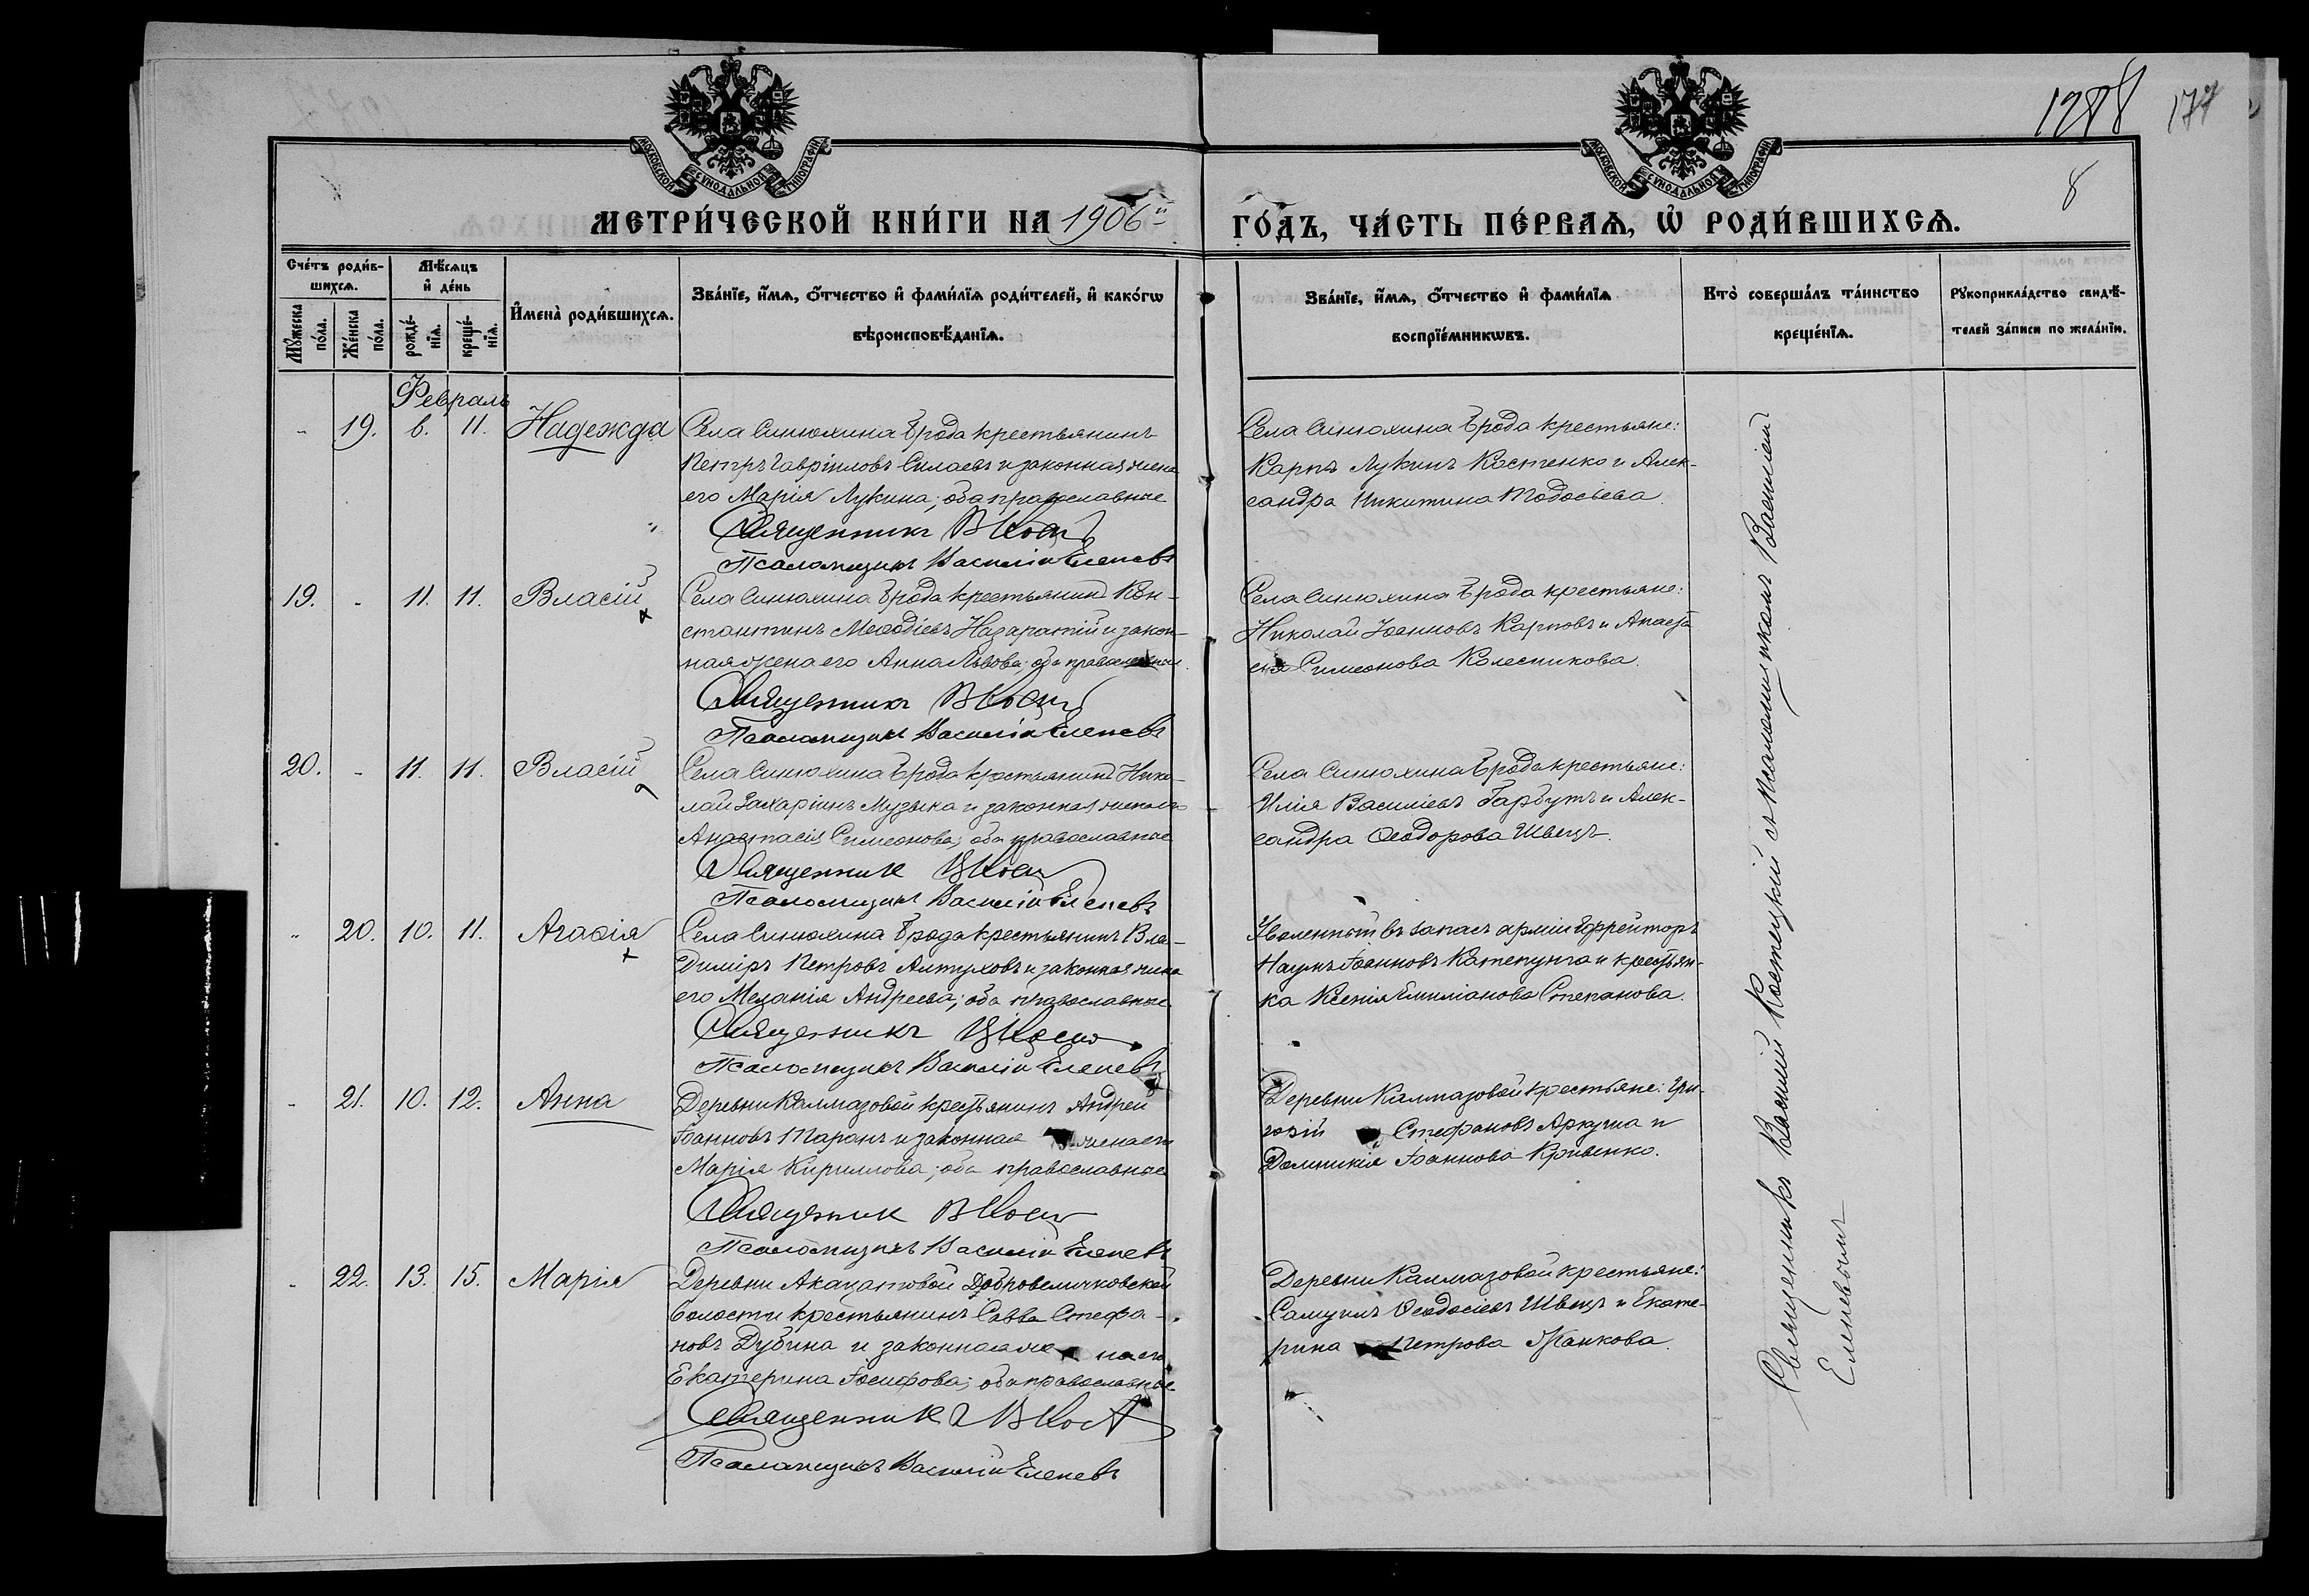 1288 177
8
МОСКОВСКОЙ СѴНОДАЛЬНОЙ ТИПОГРАФІИ
МОСКОВСКОЙ СѴНОДАЛЬНОЙ ТИПОГРАФІИ
МЕТРИ́ЧЕСКОЙ КНИ́ГИ НА 1906й
ГО́ДЪ, ЧА́СТЬ ПЕ́РВАѦ, Ѡ҆ РОДИ́ВШИХСѦ.
Сче́тъ роди́в-
шихсѧ.
Мꙋ́жеска по́ла.
Же́нска по́ла.
Мѣ́сѧцъ
и҆ де́нь
рожде́-
нїѧ.
креще́-
нїѧ.
И҆мена̀ роди́вшихсѧ.
Зва́нїе, и҆́мѧ, ѻ҆́тчество и҆ фами́лїѧ роди́телей, и҆ како́гѡ
вѣроисповѣ́данїѧ.
Зва́нїе, и҆́мѧ, ѻ҆́тчество и҆ фами́лїѧ
воспрїе́мникѡвъ.
Кто̀ соверша́лъ та́инство
креще́нїѧ.
Рꙋкоприкла́дство свидѣ́-
телей за́писи по жела́нїю.
Февраль
- 19. 6. 11. Надежда
Села Синюхина Брода крестьянинъ
Петръ Гавріиловъ Силаевъ и законная жена
его Марія Лукина; оба православные
Священникъ В Кост
Псаломщикъ Василій Еленевъ
Села Синюхина Брода крестьяне:
Карпъ Лукинъ Костенко и Алек-
сандра Никитина Тодосьева.
19. - 11. 11. Власій
Села Синюхина Брода крестьянинъ Кон-
стантинъ Меѳодіевъ Назаратій и закон-
ная жена его Анна Львова; оба православные.
Священникъ В Кост
Псаломщикъ Василій Еленевъ
Села Синюхина Брода крестьяне:
Николай Іоанновъ Карповъ и Анаста
сія Симеонова Колесникова.
20. - 11. 11. Власій
Села Синюхина Брода крестьянинъ Нико-
лай Захаріинъ Музыка и законная жена его
Анастасія Симеонова; оба православные
Священник В Кост
Псаломщикъ Василій Еленевъ
Села Синюхина Брода крестьяне:
Илія Василіевъ Гарбузъ и Алек-
сандра Ѳеодорова Швецъ.
- 20. 10. 11. Агаѳія
Села Синюхина Брода крестьянинъ Вла-
диміръ Петровъ Алтуховъ и законная жена
его Меланія Андреева; оба православные
Священникъ В Кост
Псаломщикъ Василій Еленевъ
Уволенный въ запасъ арміи Ефрейторъ
Наумъ Іоанновъ Катепунга и крестьян-
ка Ксенія Емиліанова Степанова.
- 21. 10. 12. Анна
Деревни Калмазовой крестьянинъ Андрей
Іоанновъ Таранъ и законная жена его
Марія Кириллова; оба православные
Священник В Кост
Псаломщикъ Василій Еленевъ
Деревни Калмазовой крестьяне: Гри-
горій Стефановъ Аркуша и
Домникія Іоаннова Кривенко.
- 22. 13. 15. Марія
Деревни Акацатовой Добровеличковской
волости крестьянинъ Савва Стефа-
новъ Дубина и законная жена его
Екатерина Іосифова; оба православные.
Священникъ В Кост
Псаломщикъ Василій Еленевъ
Деревни Калмазовой крестьяне:
Самуилъ Ѳеодосіевъ Швецъ и Екате-
рина Петрова Панкова.
Священникъ Василій Костецкій съ псаломщикомъ Василіемъ
Еленевымъ